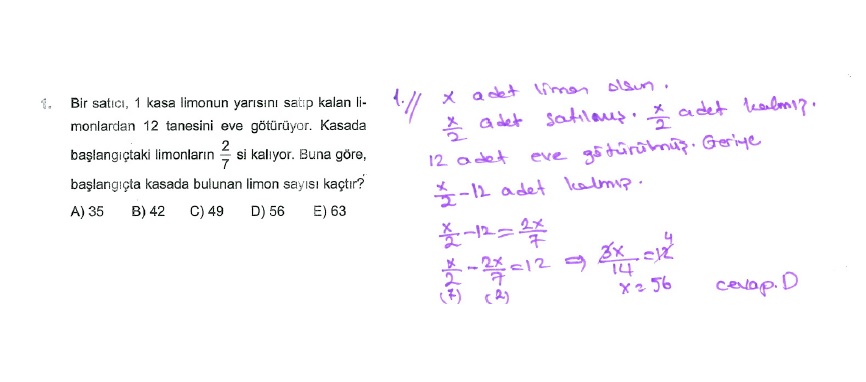 1. Bir satıcı, 1 kasa limonun yarısını satıp kalan li-
monlardan 12 tanesini eve götürüyor. Kasada
başlangıçtaki limonların 2/7 si kalıyor. Buna göre,
başlangıçta kasada bulunan limon sayısı kaçtır?
A) 35 B) 42 C) 49 D) 56 E) 63
1.// x adet limon olsun.
x/2 adet satılmış. x/2 adet kalmış.
12 adet eve götürülmüş. Geriye
x/2 - 12 adet kalmış.
x/2 - 12 = 2x/7
x/2 - 2x/7 = 12 ⇒ 3x/14 = 12 4
(7) (2) x = 56 cevap. D